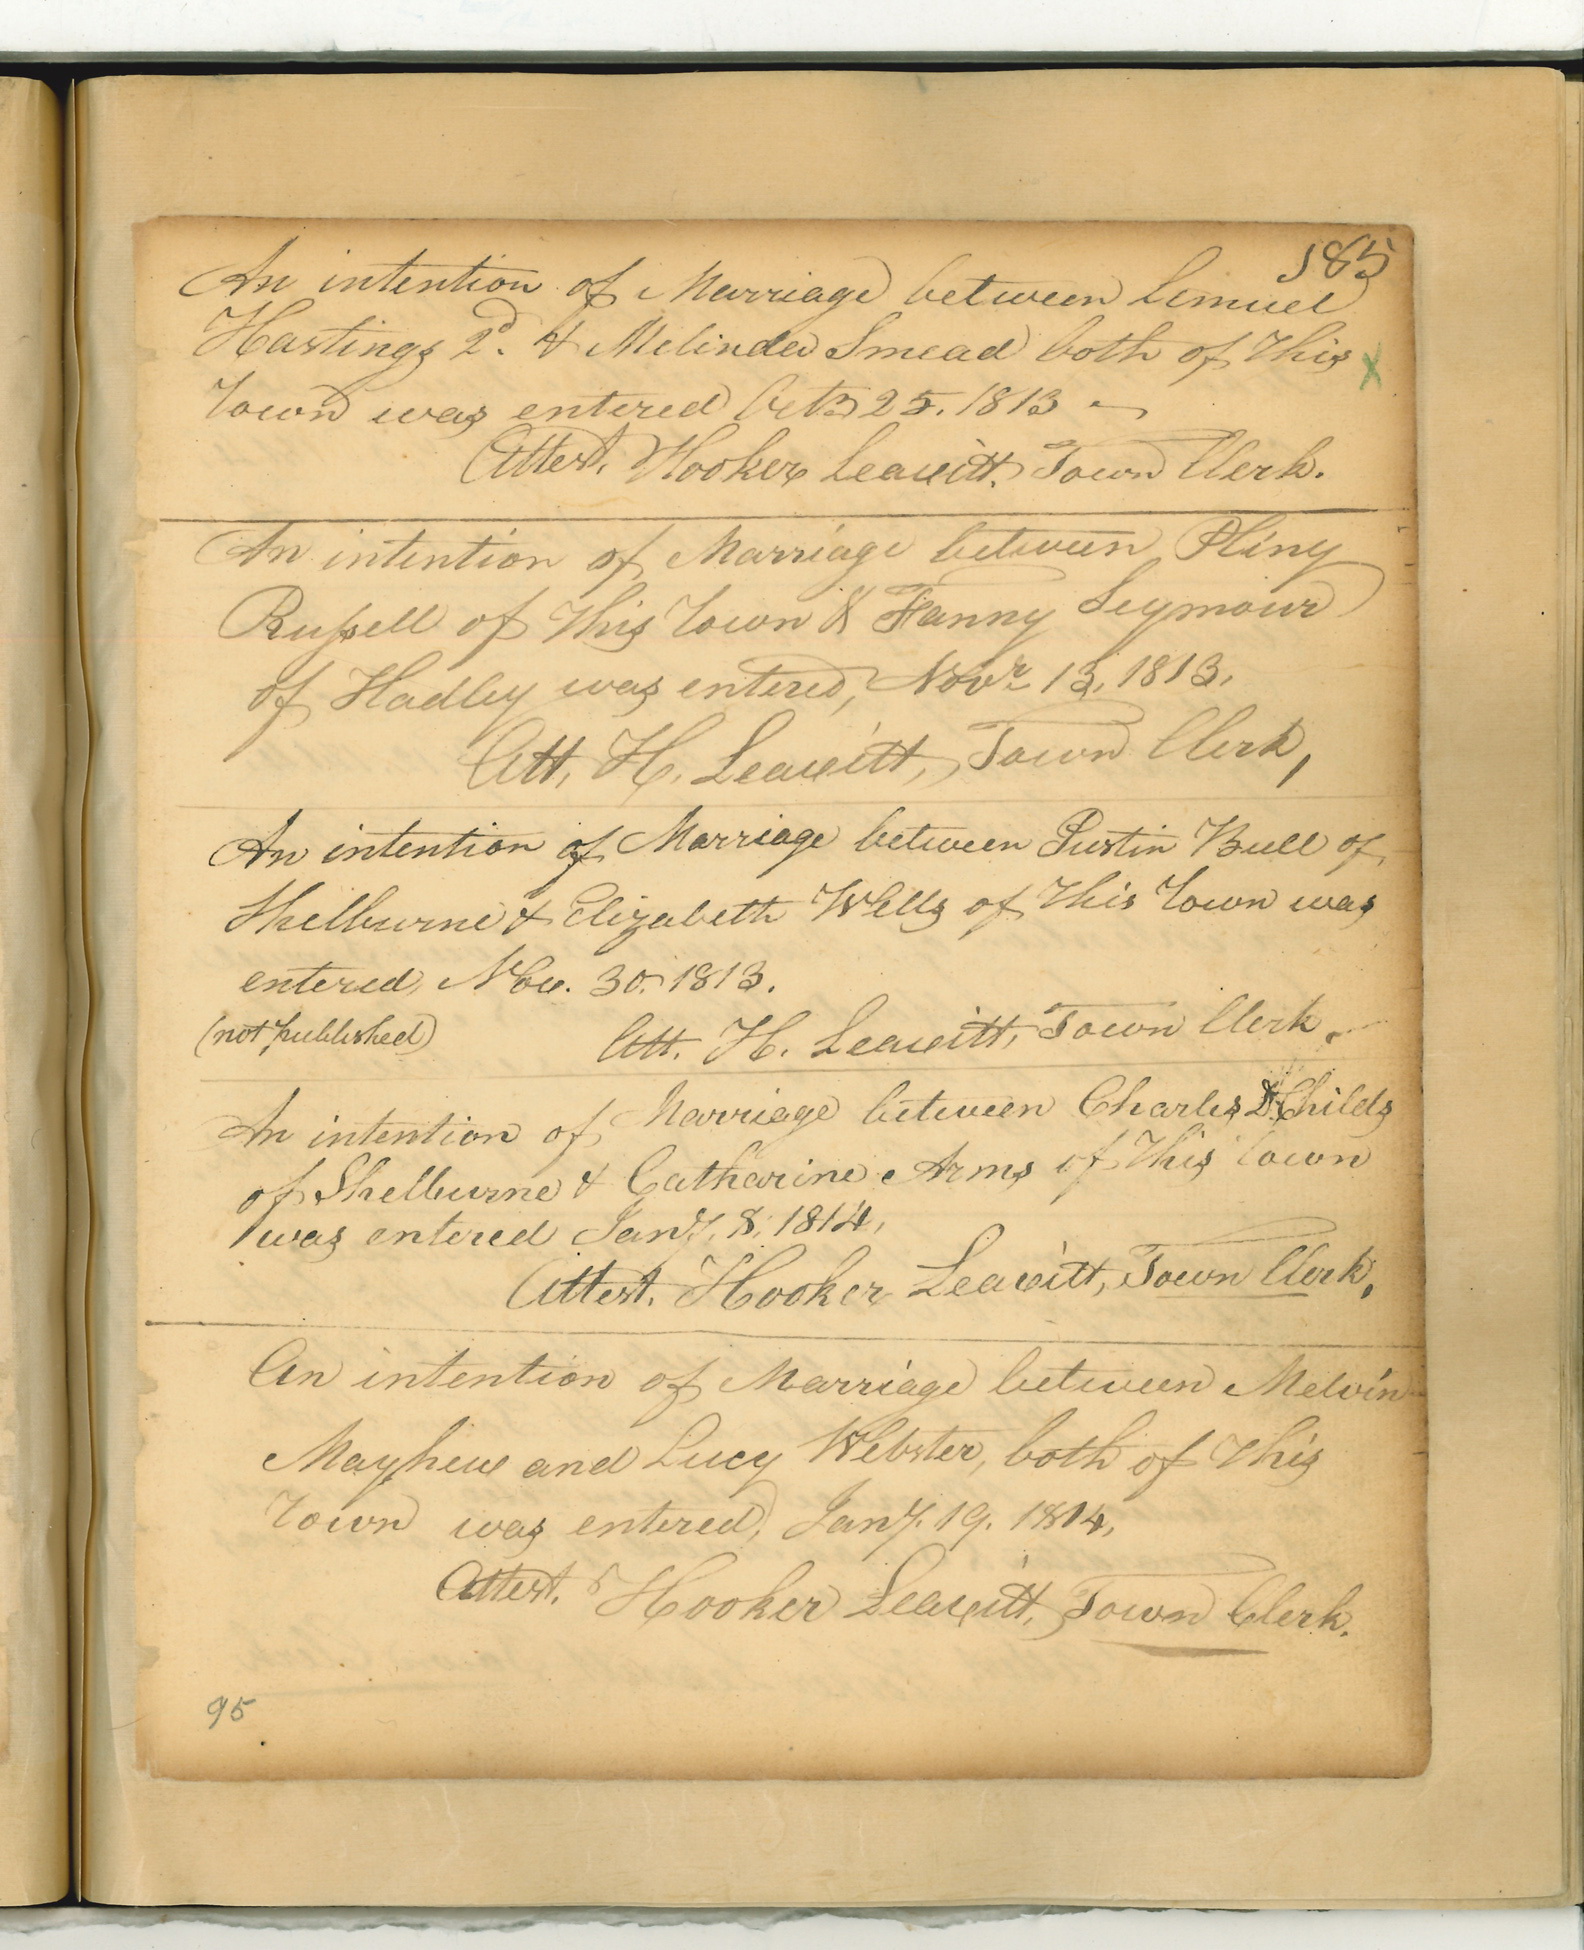 185
An intention of Marriage between Lemuel
Hastings 2d. & Melinda Smead both of this
Town was entered Octr 25. 1813
Attest, Hooker Leavitt, Town Clerk.
An intention of Marriage between Pliny
Russell of this Town & Fanny Seymour
of Hadley was entered, Novr 13, 1813.
Att, H, Leavitt, Town Clerk,
An intention of Marriage between Justin Bull of
Shelburne & Elizabeth Wells of this Town was
entered, Nov. 30. 1813.
(not published)
Att. H. Leavitt, Town Clerk.
An intention of Marriage between Charles Childs
of Shelburne & Catharine Arms of this town
was entered Jany. 8, 1814,
Attest. Hooker Leavitt, Town Clerk,
An intention of Marriage between Melvin
Mayhew and Lucy Webster, both of this
Town was entered, Jany. 19. 1814,
Attest. Hooker Leavitt, Town Clerk.
95